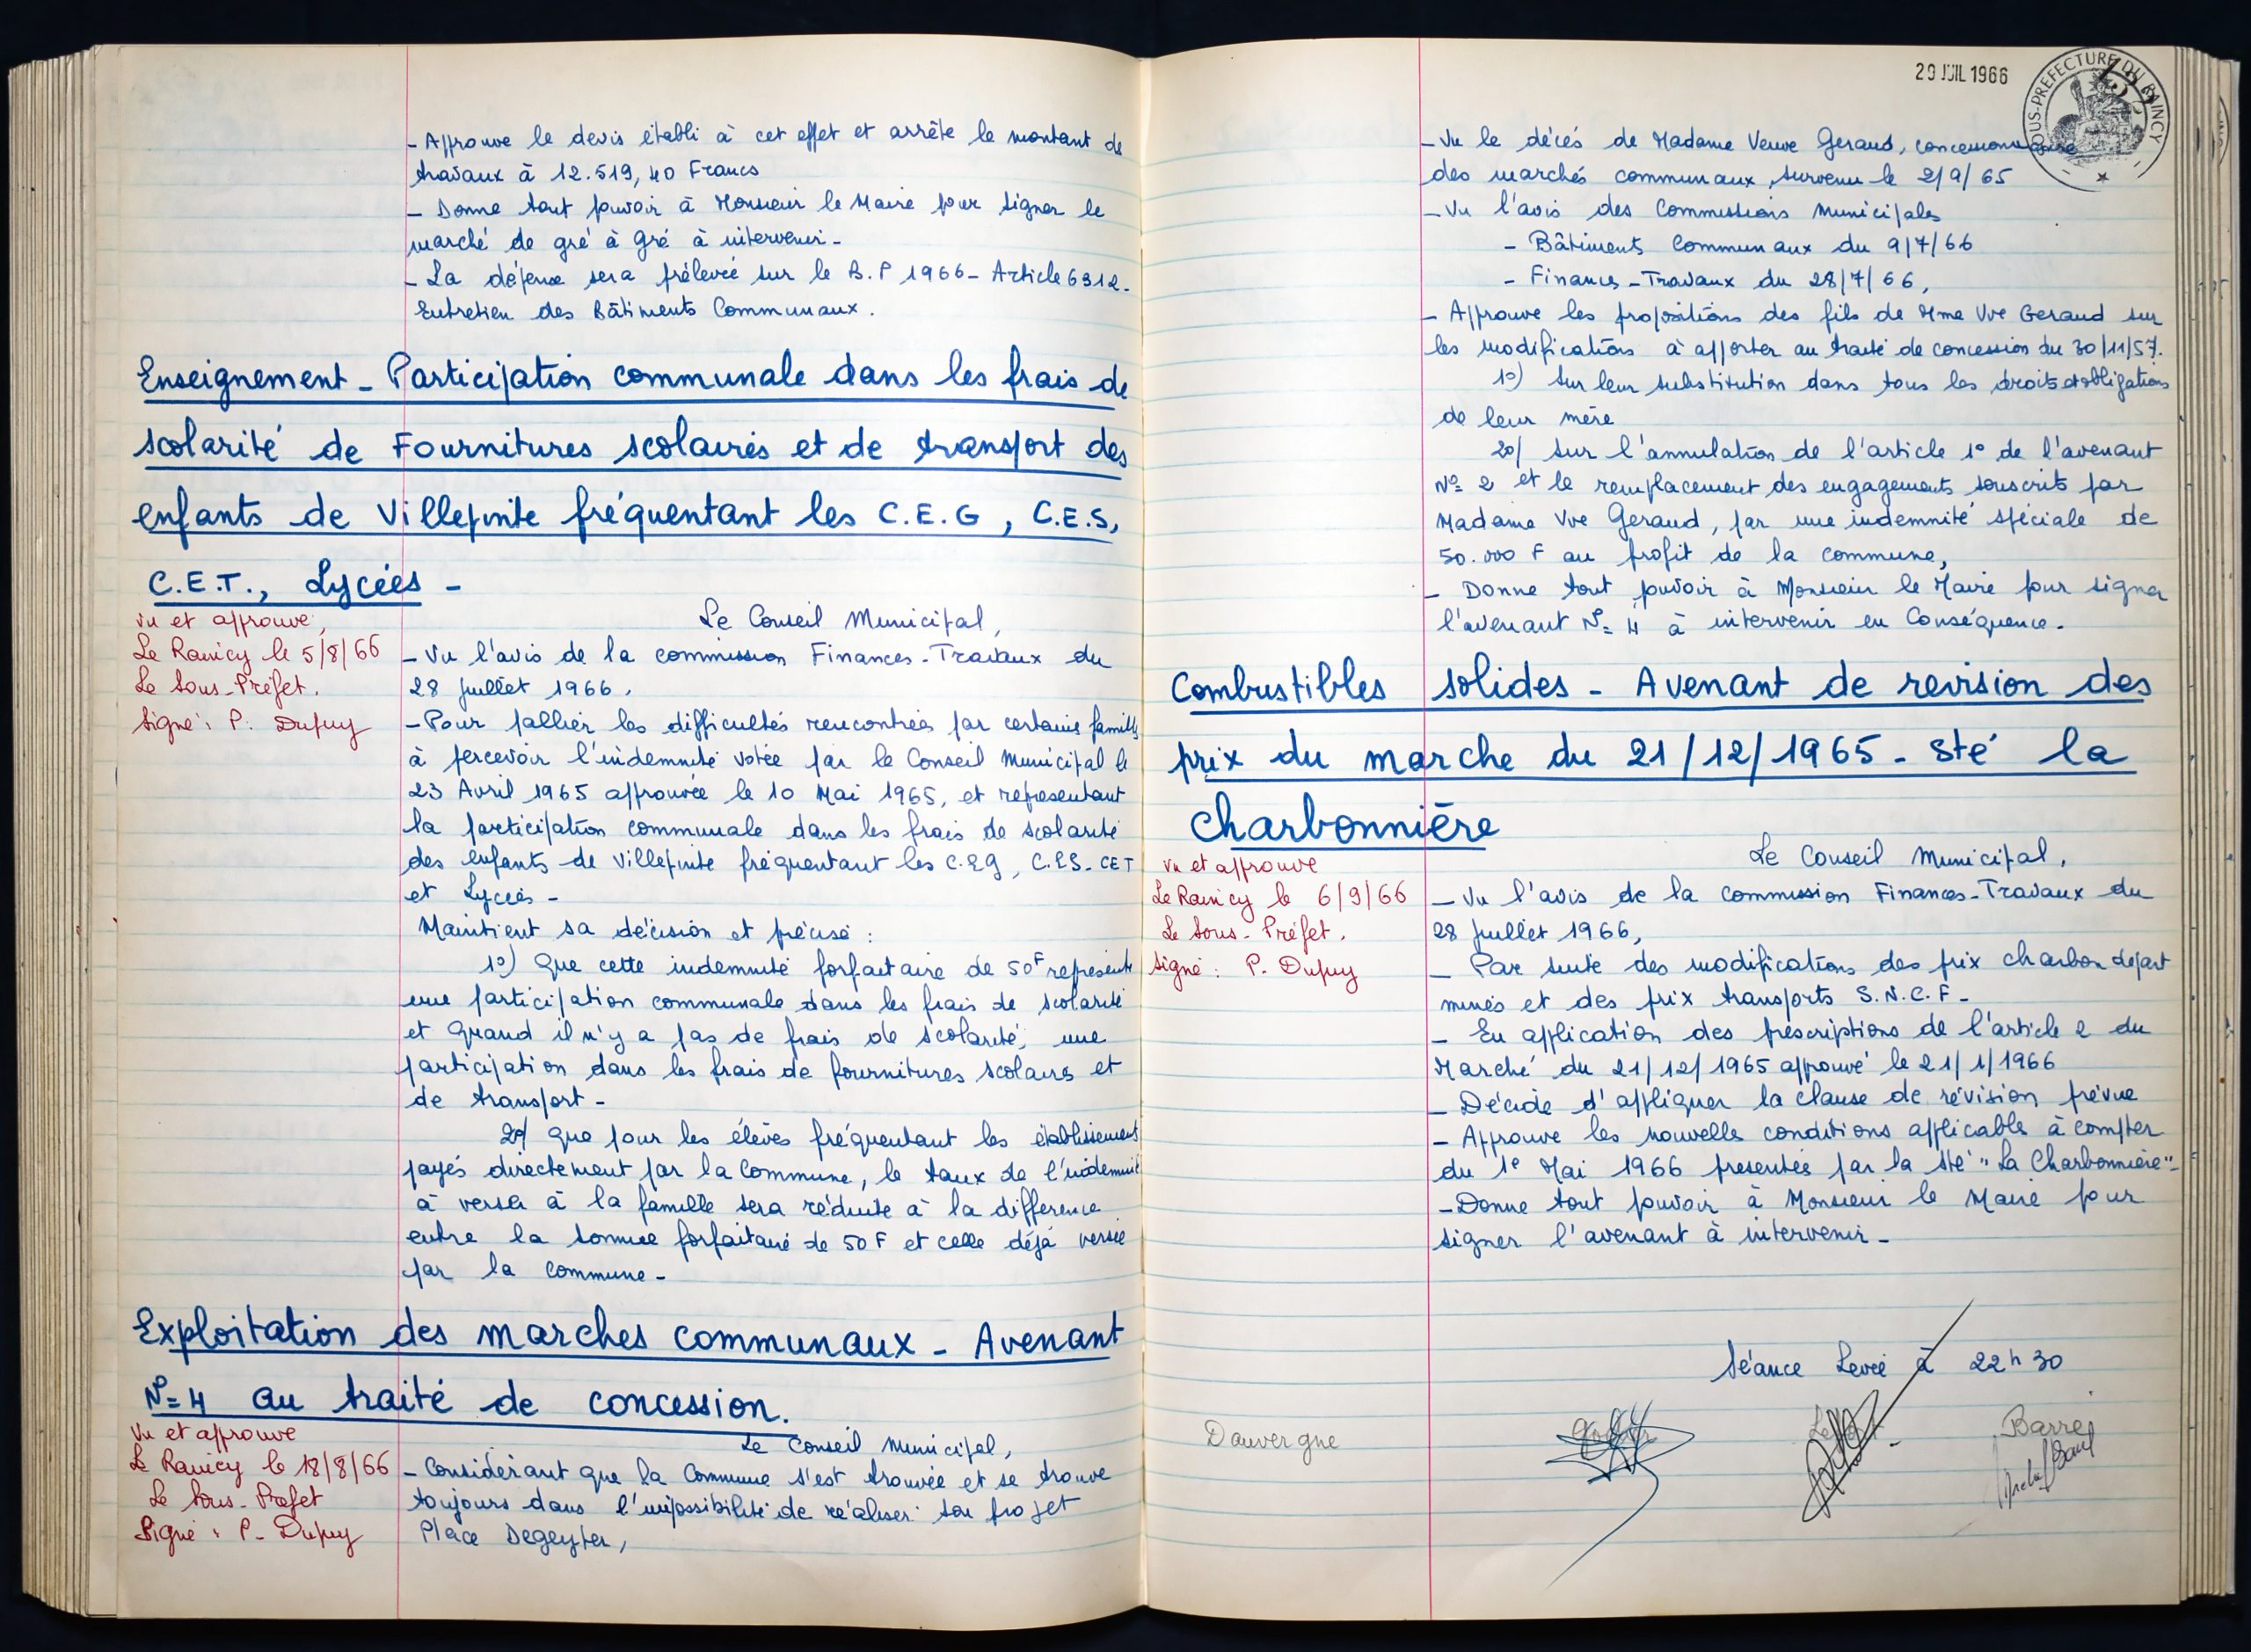 - Approuve le devis établi à cet effet et arrête le montant de
travaux à 12.519,40 Francs
- Donne tout pouvoir à Monsieur le Maire pour signer le
marché de gré à gré à intervenir -
- La dépense sera prélevée sur le B.P 1966 - Article 6312.
Entretien des Bâtiments Communaux.
Enseignement - Participation communale dans les frais de
scolarité de Fournitures scolaires et de transport des
enfants de Villepinte fréquentant les C.E.G, C.E.S,
C.E.T., Lycées -
Vu et approuvé,
Le Raincy le 5/8/66
Le Sous-Préfet.
Signé : P. Dupuy
Le Conseil Municipal,
- Vu l'avis de la commission Finances-Travaux du
28 Juillet 1966.
- Pour pallier les difficultés rencontrées par certains familles
à percevoir l'indemnité votée par le Conseil Municipal le
23 Avril 1965 approuvée le 10 Mai 1965, et représentant
la participation communale dans les frais de scolarité
des enfants de Villepinte fréquentant les C.E.G, C.E.S-CET
et Lycées -
Maintient sa décision et précise :
1°) Que cette indemnité forfaitaire de 50F représente
une participation communale dans les frais de scolarité
et quand il n'y a pas de frais de scolarité, une
participation dans les frais de fournitures scolaires et
de transport -
2°/ que pour les élèves fréquentant les établissements
payés directement par la Commune, le taux de l'indemnité
à verser à la famille sera réduite à la différence
entre la somme forfaitaire de 50 F et celle déjà versée
par la commune -
Exploitation des marches communaux - Avenant
N°= 4 au traité de concession.
Vu et approuvé
Le Raincy le 18/8/66
Le Sous-Préfet
Signé : P- Dupuy
Le Conseil Municipal,
- Considérant que la Commune s'est trouvée et se trouve
toujours dans l'impossibilité de réaliser son projet
Place Degeyter,
29 JUIL 1966
SOUS-PREFECTURE DU RAINCY
- Vu le décés de Madame Veuve Geraud, concessionnaire
des marchés communaux, survenu le 2/9/65
- Vu l'avis des Commissions Municipales
- Bâtiments Communaux du 9/7/66
- Finances-Travaux du 28/7/66,
- Approuve les propositions des fils de Mme Vve Geraud sur
les modifications à apporter au traité de concession du 30/11/57.
1°) Sur leur substitution dans tous les droits et obligations
de leur mère
2°/ Sur l'annulation de l'article 1° de l'avenant
N°= 2 et le remplacement des engagements souscrits par
Madame Vve Geraud, par une indemnité spéciale de
50.000 F au profit de la commune,
- Donne tout pouvoir à Monsieur le Maire pour signer
l'avenant N°= 4 à intervenir en Conséquence.
Combustibles solides - Avenant de revision des
prix du marche du 21/12/1965 - Sté la
Charbonnière
Vu et approuvé
Le Raincy le 6/9/66
Le Sous-Préfet.
Signé : P. Dupuy
Le Conseil Municipal,
- Vu l'avis de la commission Finances-Travaux du
28 Juillet 1966,
- Par suite des modifications des prix charbon départ
mines et des prix transports S.N.C.F -
- En application des prescriptions de l'article 2 du
Marché du 21/12/1965 approuvé le 21/1/1966
- Décide d'appliquer la clause de révision prévue
- Approuve les nouvelle conditions applicable à compter
du 1e Mai 1966 presentées par la Sté "La Charbonnière"-
- Donne tout pouvoir à Monsieur le Maire pour
signer l'avenant à intervenir -
Séance Levée à 22h30
Dauvergne
Barre